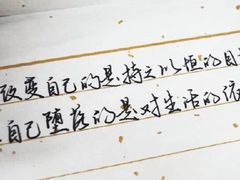 改变自己的是持之以恒的目
自己堕落的是对生活的